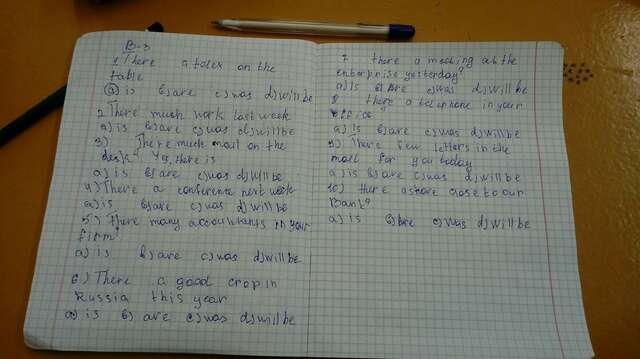 B-3
1 There a telex on the
table
a) is b) are c) was d) will be
2. There much work last week
a) is b) are c) was d) will be
3) There much mail on the
desk? Yes, there is
a) is b) are c) was d) will be
4) There a conference next week
a) is b) are c) was d) will be
5) There many accountants in your
firm?
a) is b) are c) was d) will be
6) There a good crop in
Russia this year
a) is b) are c) was d) will be
7 there a meeting at the
enterprise yesterday?
a) Is b) are c) was d) will be
8 there a telephone in your
office
a) Is b) are c) was d) will be
9) There few letters in the
mail for you today
a) is b) are c) was d) will be
10) there a store close to our
Bank?
a) is b) are c) was d) will be